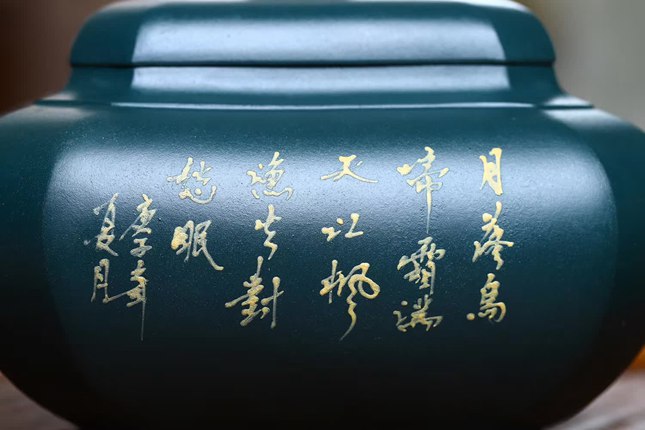 月落烏
啼霜滿
天江楓
漁火對
愁眠
庚子年
夏月